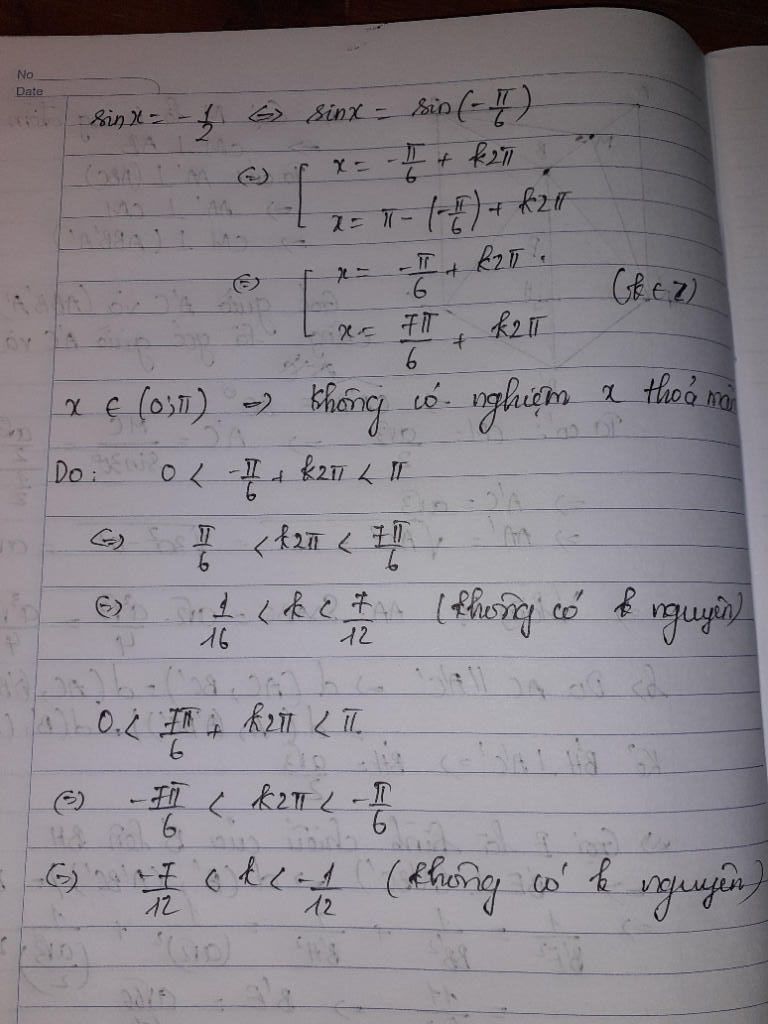 No
Date
sinx = -1/2 ⇔ sinx = sin(-π/6)
⇔ [ x = -π/6 + k2π
x = π - (-π/6) + k2π
⇔ [ x = -π/6 + k2π.
(k ∈ Z)
x = 7π/6 + k2π
x ∈ (0;π) => Không có nghiệm x thoả mãn
Do: 0 < -π/6 + k2π < π
⇔ π/6 < k2π < 7π/6
⇔ 1/16 < k < 7/12 (không có k nguyên)
0 < 7π/6 + k2π < π
⇔ -7π/6 < k2π < -π/6
⇔ -7/12 < k < -1/12 (không có k nguyên)